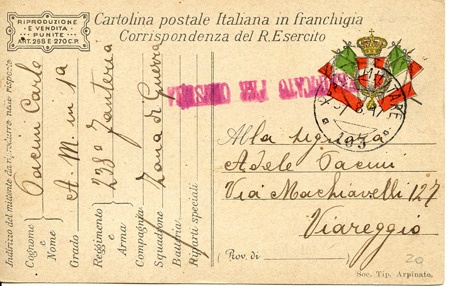 RIPRODUZIONE
E VENDITA
PUNITE
ART. 268 E 270 C.P.
Cartolina postale Italiana in franchigia
Corrispondenza del R. Esercito
Indirizzo del mittente da riprodurre nelle risposte
Cognome e Nome Pacini Carlo
Grado A. M. in 1a
Reggimento e Arma: 238º Fanteria
Compagnia Zona di Guerra
Squadrone
Batteria
Riparti speciali
PER
103
Alla Signora
Adele Pacini
Via Machiavelli 127
Viareggio
(Prov. di
20
Soc. Tip. Arpinate.